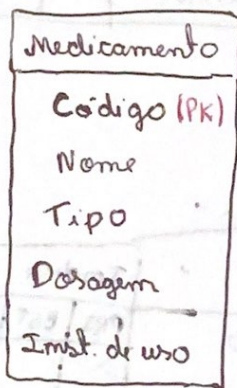 Medicamento
Código (PK)
Nome
Tipo
Dosagem
Inst. de uso